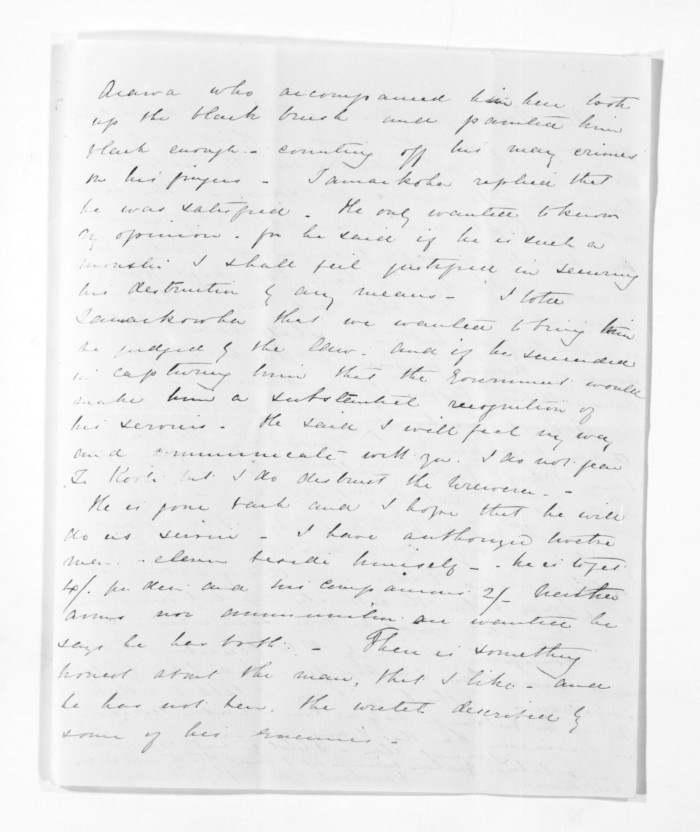 Arawa who accompanied him here took
up the black brush and painted him
black enough - counting off his many crimes
on his fingers - Tamaikoha replied that
he was satisfied - He only wanted to know
my opinion - for he said if he is such a
monster I shall feel justified in securing
his destruction by any means - I told
Tamaikowha that we wanted to bring him
be judged by the law - and if he succeeded
in capturing him that the Government would
make him a substantial recognition of
his services - He said I will feel my way
and communicate with you. I do not fear
Te Kooti but I do distrust the Urewera -
He is gone back and I hope that he will
do us service - I have authorized twelve
men - eleven beside himself - he is to get
4/. per diem and his companions 2/- Neither
arms nor ammunition are wanted he
says he has both - There is something
honest about the man, that I like - and
he has not been the wretch described by
some of his enemies -